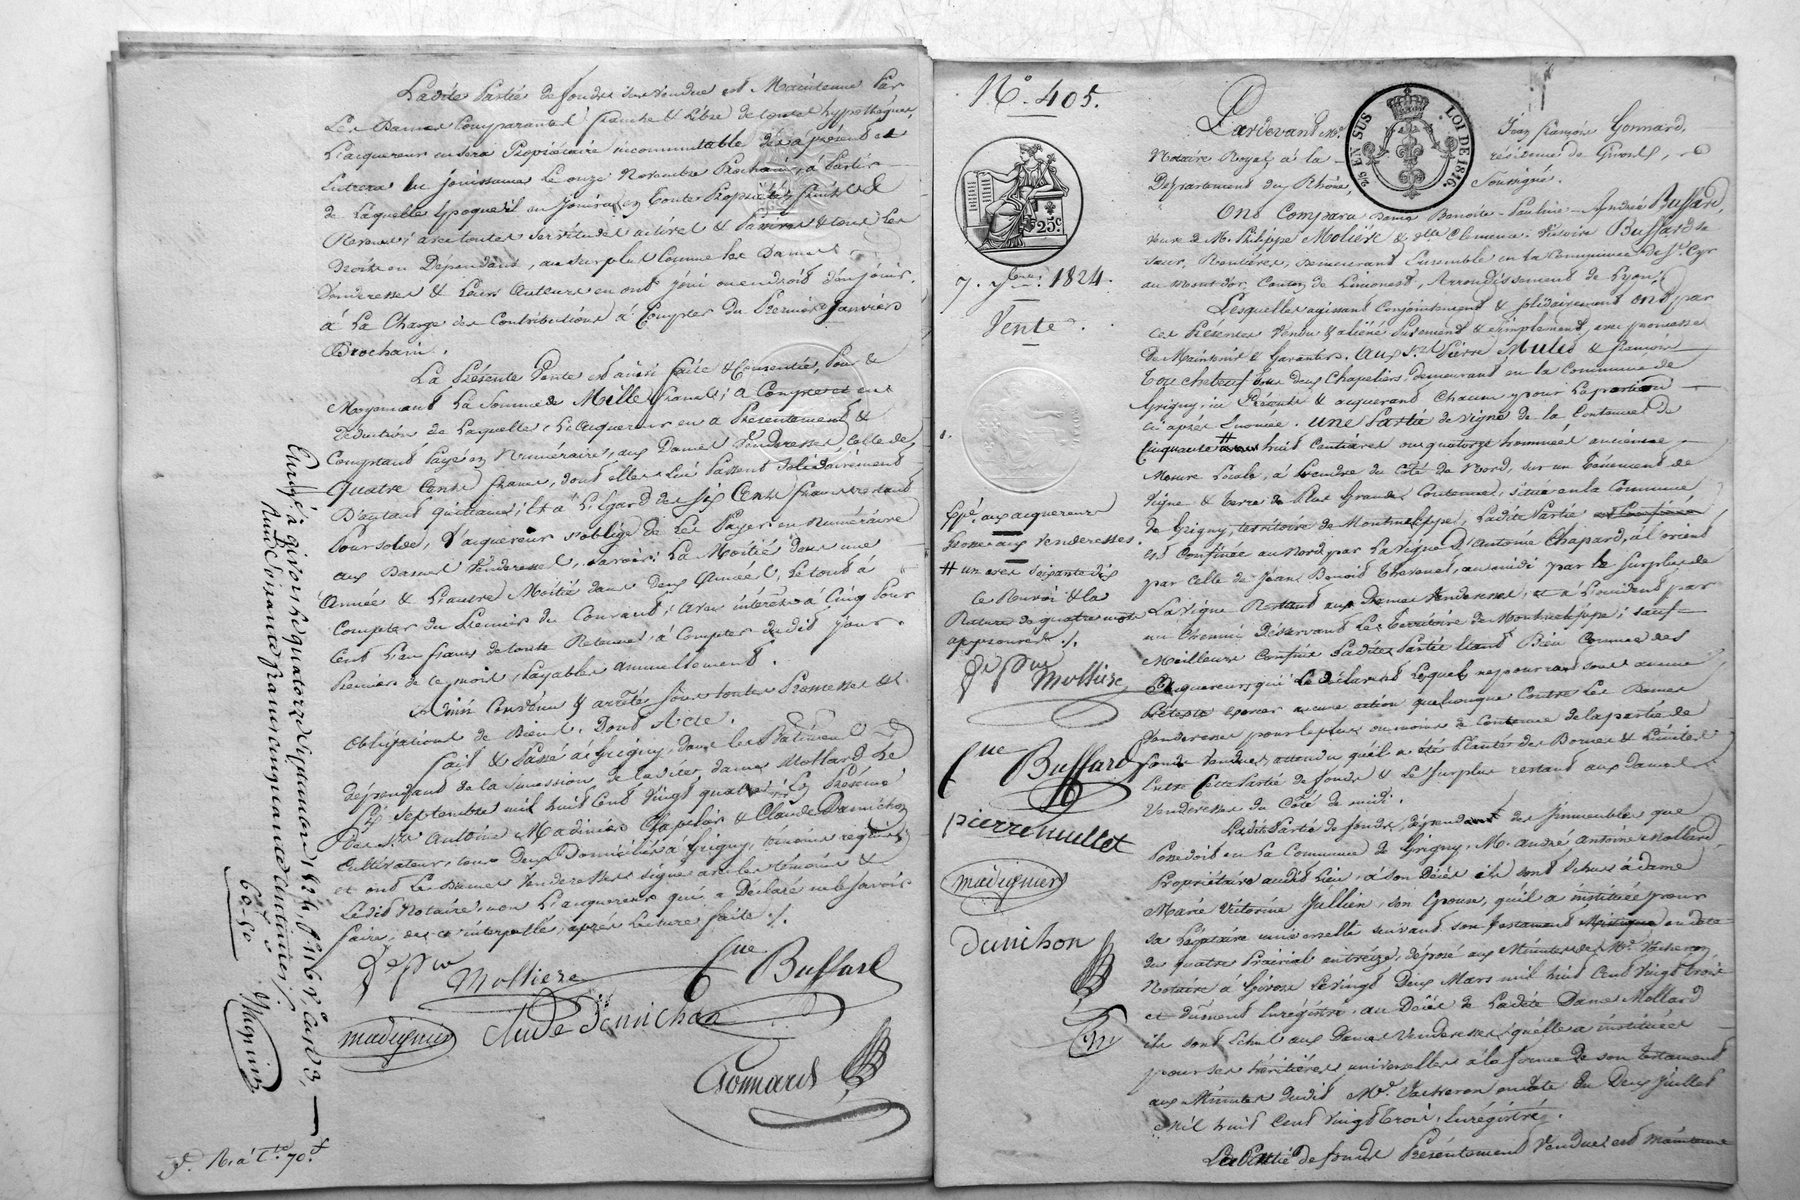 Ladite Partie de fondes sus vendue est Maintenue Par
Les Dames Comparantes franche & Libre de toutes hypothèques,
L'acquereur en sera Propriétaire incommutable dès à présent et
Entrera en jouissance Le onze Novembre Prochain, à Partir
de Laquelle Epoque il en Jouira en toute Propriété fruits &
Revenus, avec toutes servitudes actives & Passives & tous Les
Droits en Dépendants, au surplus Comme les Dames
Venderesses & Leurs Auteurs en ont joui ou en droit d'en jouir.
à La Charge des Contributions à Compter du Premier Janvier
Prochain.
La Présente Vente est ainsi faite & Consentie, Pour &
Moyennant La Somme de Mille francs; à Compte et en
Déduction de Laquelle, L'Acquereur en a Présentement &
Comptant Payé en Numéraire, aux Dames Venderesses Celle de
Quatre Cents francs, dont elles Lui Passent Solidairement
D'autant quittance; Et à L'Egard des Six Cents francs restant
Pour solde, l'acquereur s'oblige de Les Payer en Numéraire
aux Dames Venderesses, savoir: La Moitié dans une
Année & L'autre Moitié dans Deux Années, Le tout à
Compter du Premier du Courant, avec intérêts à Cinq Pour
Cent L'an francs de toute Retenue, à Compter dudit jour
Premier de ce mois, Payables annuellement.
Ainsi Convenu & arrêté sous toutes Promesses &
Obligations de Biens. Dont Acte.
fait & Passé à Grigny, dans les Bâtiments
dépendant de la Succession de ladite dame Mollard Le
Sept Septembre mil huit Cent Vingt quatre; En Présence
Des Srs Antoine Madinier Chapelier & Claude Damichon
Cultivateur, tous Deux Domiciliés à Grigny, témoins requis
et ont Les Dames Venderesses signé avec les témoins &
Ledit Notaire, non L'acquereur qui a Déclaré ne le savoir
faire, de ce interpellé, après Lecture faite ./.
Ve Molliere
Cne Buffard
madignier
Claude Damichon
Gonnard
Enregé à givors le quatorze Septembre 1824, fo
Reçu cinquante francs cinquante centimes
60-50
70
No. 405.
25c
EN SUS
LOI DE 1816.
7. 7bre 1824.
Vente.
Expé. aux acquereurs
Grosse aux Venderesses.
# un ares soixante dix
Ce Renvoi & la
Rature de quatre mots
approuvés ./.
Ve Molliere
Cne Buffard
pierre mullet
madignier
Damichon
Gn
Pardevant Me. Jean françois Gonnard,
Notaire Royal à la résidence de Givors,
Département du Rhône, Soussigné.
Ont Comparu Dame Benoite-Pauline-Andrée Buffard,
veuve de M. Philippe Molière & Dlle Clemence Victoire Buffard sa
sœur, Rentières, demeurant Ensemble en la Commune de St. Cyr
au mont d'or, Canton de Limonest, Arrondissement de Lyon;
Lesquelles agissant Conjointement & solidairement ont par
Ces Présentes Vendu & aliéné Purement & Simplement, avec promesse
de Maintenir & Garantir. aux Srs. Pierre Mulet & francois
Toucheboeuf tous deux Chapeliers, demeurant en la Commune de
Grigny, ici Présents & acquerant Chacun pour La portion
Ci après Enoncée. une Partie de Vigne de la Contenue de
Cinquante # huit Centiares ou quatorze hommées ancienne
Mesure Locale, à Prendre du Côté du Nord, sur un Ténement de
Vigne & Terre de Plus Grande Contenue, située en la Commune
de Grigny, territoire de Montmelippe, Ladite Partie
est Confinée au Nord par La Vigne d'Antoine Chapard, à l'orient
par celle de Jean Benoit Thevenet, au midi par le Surplus de
La Vigne Restant aux Dames Venderesses, et à L'occident par
un Chemin Désservant Les Territoire de Montmelippe; sauf
Meilleurs Confins Ladite Partie étant Bien Connue des
Acquereurs qui Le déclarent Lesquels ne pourront sous aucun
Prétexte exercer aucune action quelconque Contre Les Dames
Venderesses pour le plus ou moins de Contenue de la partie de
fonds Vendue, attendu qu'il a été Planté des Bornes & Limites
Entre Cette Partie de fonds & Le Surplus restant aux dames
Venderesses du Côté de midi.
Ladite Partie de fonds, dépendait des Immeubles que
Possedoit en La Commune de Grigny, M. André Antoine Mollard,
Propriétaire audit Lieu, à son Décès ils sont Echus à dame
Marie Victorine Jullien, son Epouse, qu'il a instituée pour
sa Légataire universelle suivant son Testament en date
du quatre Prairial an treize, déposé aux Minutes de Me. Vacheron
Notaire à Givors Le vingt Deux Mars mil huit Cent Vingt trois
et dûment Enregistré, au Décès de Ladite Dame Mollard
ils sont Echus aux Dames Venderesses qu'elle a instituées
pour ses héritières universelles à la forme de son Testament
aux Minutes dudit Me. Vacheron en date du Deux Juillet
Mil huit Cent Vingt trois, Enregistré.
La Partie de fonds Présentement Vendue est maintenue